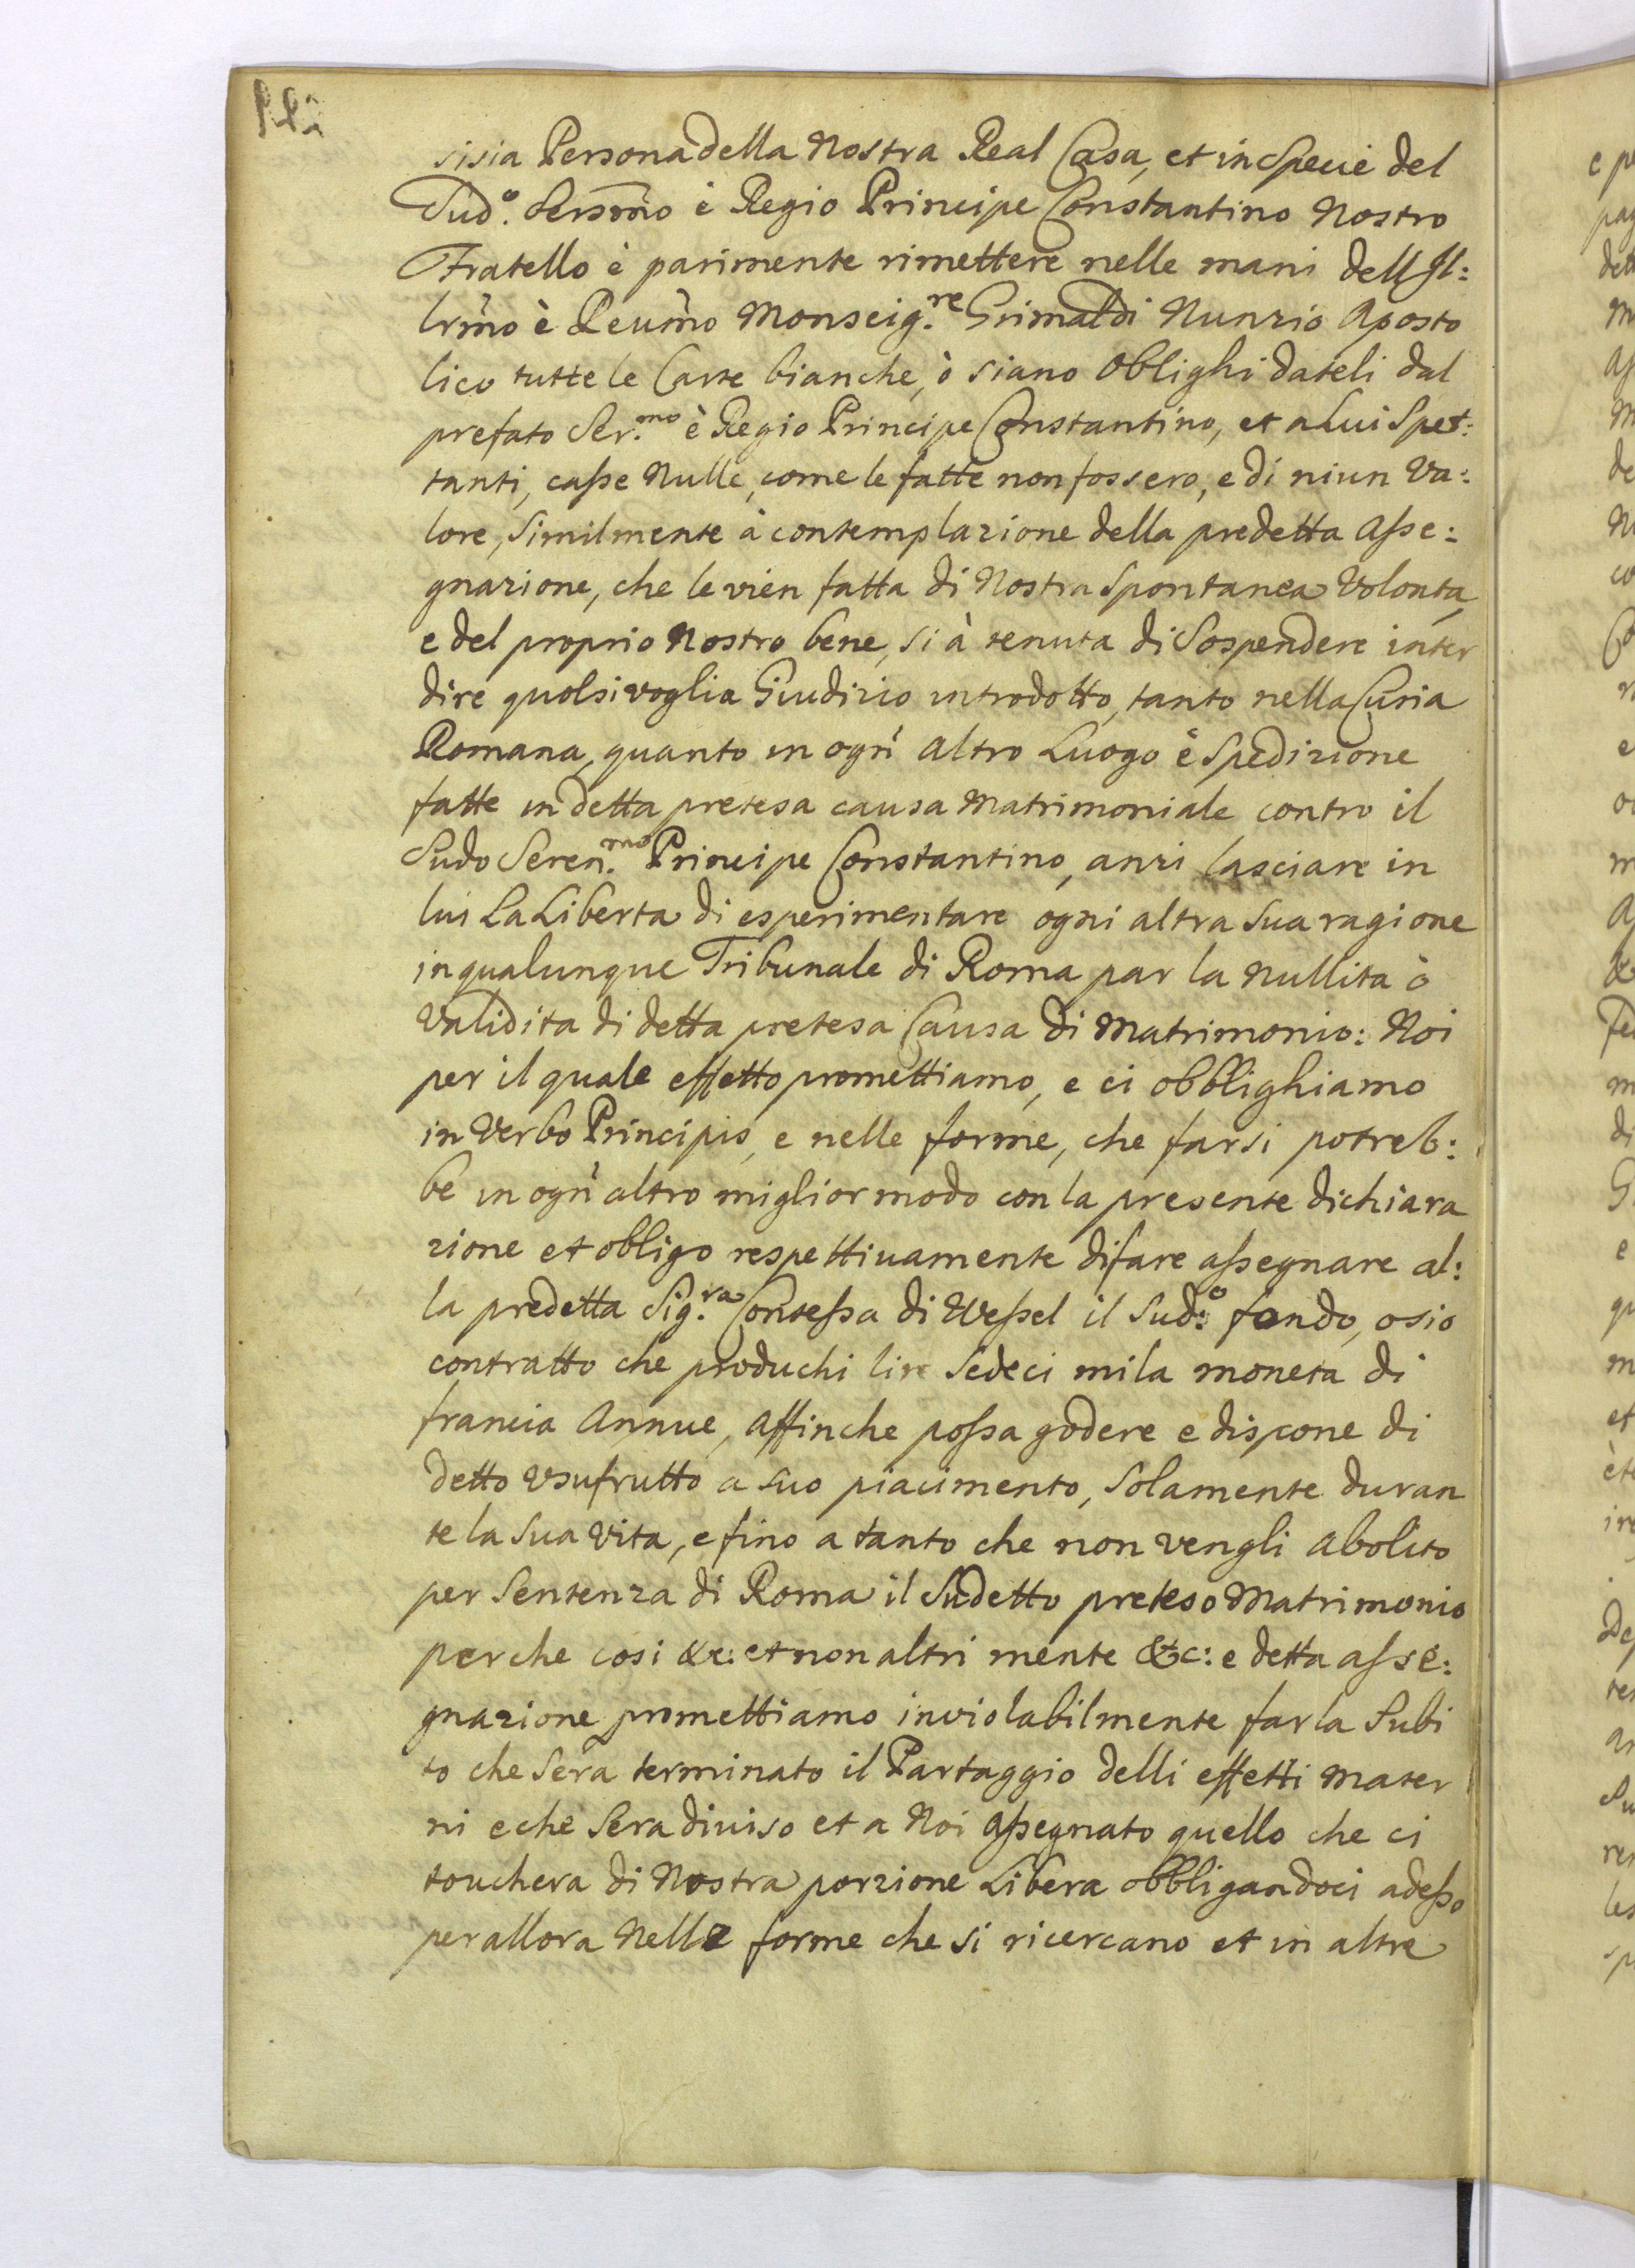 sisia Persona della Nostra Real Casa, et in Specie del
Sud.o Sersm̃o è Regio Principe Constantino Nostro
Fratello è parimente rimettere nelle mani dell Il:
lrm̃o è Reum̃o Monseig.re Grimaldi Nunzio Aposto
lico tutte le Carte bianche, ò siano Oblighi dateli dal
prefato Ser.mo è Regio Principe Constantino, et a Lui Spet:
tanti, casse Nulle, come le fatte non fossero, e di niun Va:
lore, Similmente à contemplazione della predetta Asse:
gnazione, che le vien fatta di Nostra Spontanea Volonta,
e del proprio Nostro bene, si à tenuta di Sospendere inter
dire quolsivoglia Giudizio introdotto, tanto nella Curia
Romana, quanto in ogni altro Luogo è Spedizione
fatte in detta pretesa causa Matrimoniale contro il
Sudo Seren.mo Principe Constantino, anzi lasciare in
lui La Liberta di esperimentare ogni altra Sua ragione
in qualunque Tribunale di Roma par la Nullita ò
Validita di detta pretesa Causa di Matrimonio: Noi
per il quale effetto promettiamo, e ci obblighiamo
in Verbo Principis, e nelle forme, che farsi potreb:
be in ogni altro miglior modo con la presente dichiara
zione et obligo respettiuamente di fare assegnare al:
la predetta Sig.ra Contessa di Wessel il Sud:o fondo, osio
contratto che produchi lire Sedeci mila moneta di
francia Annue, Affinche possa godere e dispone di
detto Vsufrutto a suo piacimento, Solamente duran
te la Sua Vita, e fino a tanto che non vengli abolito
per Sentenza di Roma il Sudetto preteso Matrimonio
perche cosi &c: et non altri mente &c: e detta asse:
gnazione promettiamo inviolabilmente farla Subi
to che Sera terminato il Partaggio delli effetti Mater
ni e che Sera diuiso et a Noi Assegnato quello che ci
touchera di Nostra porzione Libera obbligandoci adesso
per allora Nelle forme che si ricercano et in altre